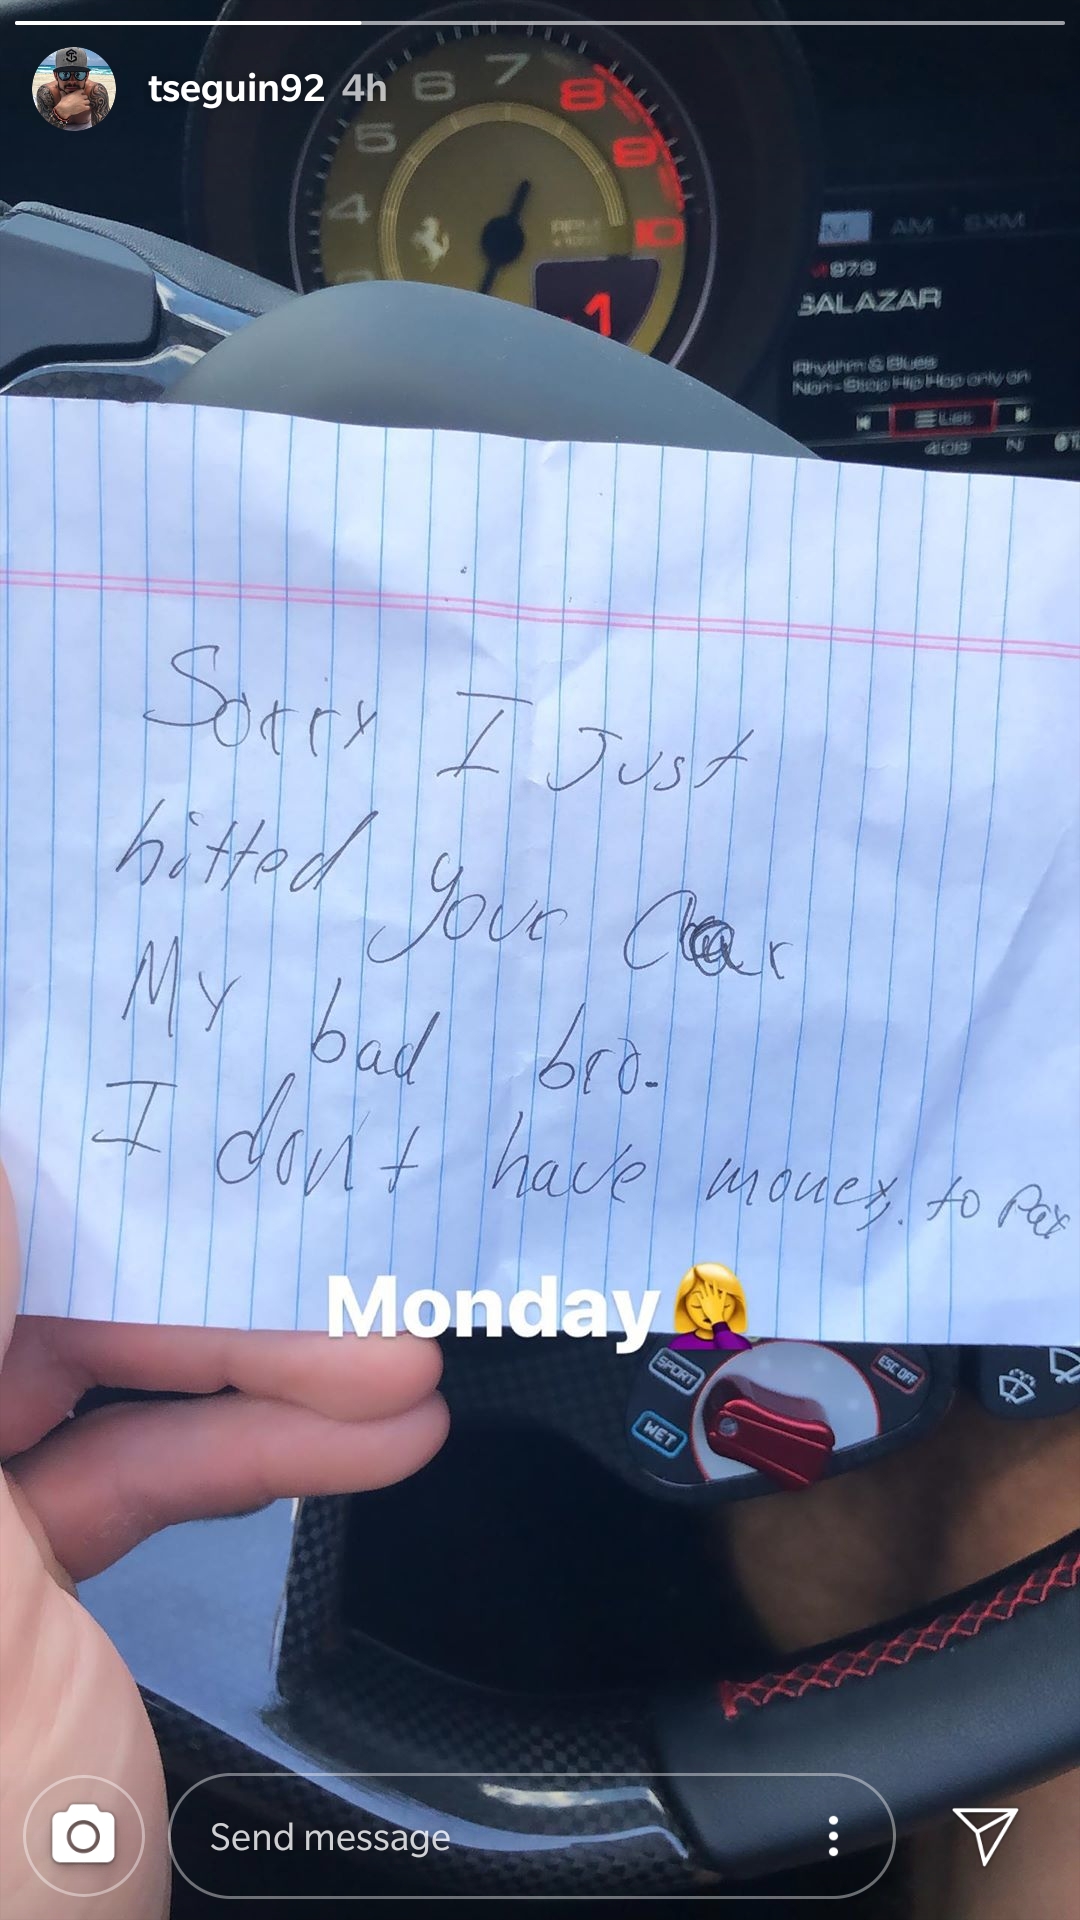 tseguin92 4h
6 7 8
5 9
4 10
AM SXM
97.9
SALAZAR
-1
Rhythm & Blues
Non-Stop Hip Hop only on
List
409 N
Sorry I Just
hitted your Car
My bad bro.
I don't have money. to Pay
Monday
SPORT
ESC OFF
WET
Send message